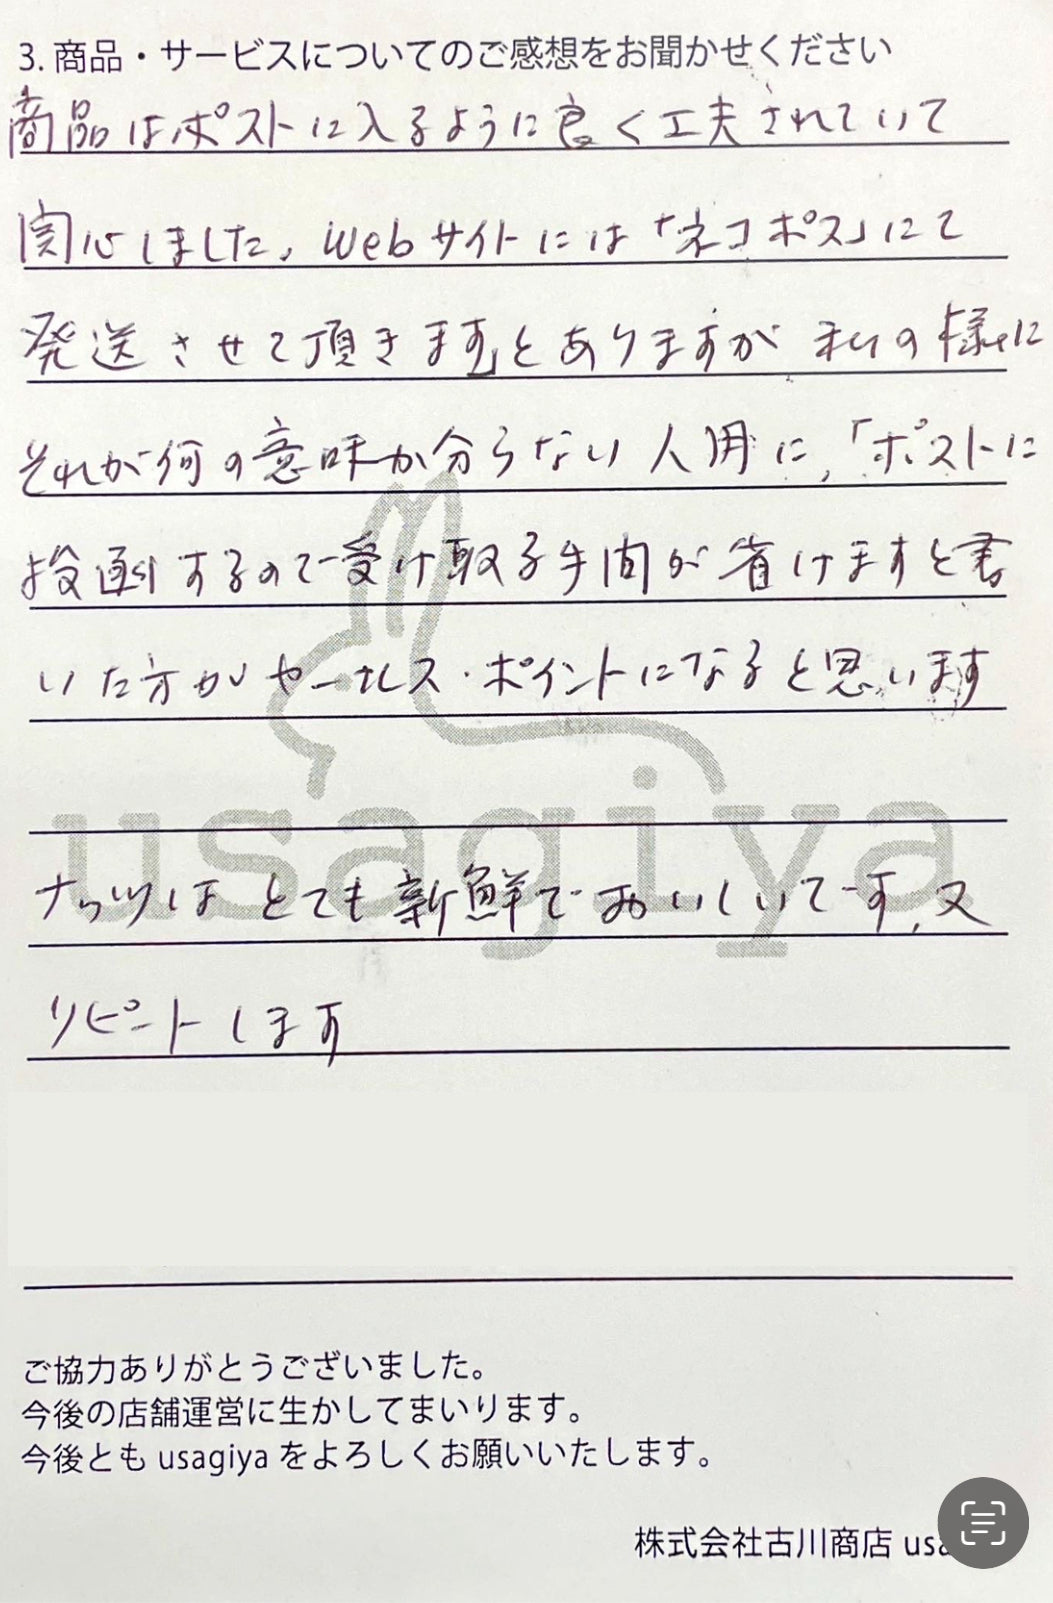 3. 商品・サービスについてのご感想をお聞かせください
商品はポストに入るように良く工夫されていて
関心しました。Webサイトには「ネコポス」にて
発送させて頂きます」とありますが 私の様に
それが何の意味か分らない人用に、「ポストに
投函するので受け取る手間が省けますと書
いた方がセールス・ポイントになると思います
usagiya
ナッツはとても新鮮でおいしいです、又
リピートします
ご協力ありがとうございました。
今後の店舗運営に生かしてまいります。
今後とも usagiya をよろしくお願いいたします。
株式会社古川商店 usa